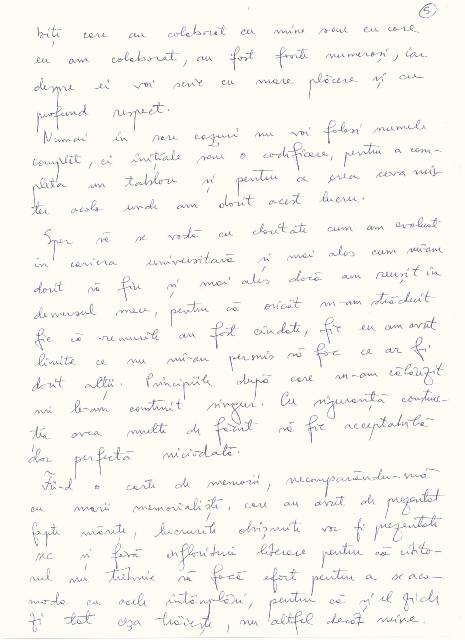 5
biți care au colaborat cu mine sau cu care
eu am colaborat, au fost foarte numeroși, iar
despre ei voi scrie cu mare plăcere și cu
profund respect.
Numai în rare cazuri nu voi folosi numele
complet, ci inițiale sau o codificare, pentru a com-
pleta un tablou și pentru a crea ceva mis-
ter acolo unde am dorit acest lucru.
Sper să se vadă cu claritate cum am evoluat
în cariera universitară și mai ales cum mi-am
dorit să fiu și mai ales dacă am reușit în
demersul meu, pentru că oricât m-am străduit
fie că vremurile au fost ciudate, fie eu am avut
limite ce nu mi-au permis să fac ce ar fi
dorit alții. Principiile după care m-am călăuzit
mi le-am construit singur. Cu siguranță construc-
ția avea multe de făcut să fie acceptabilă
dar perfectă niciodată.
Fiind o carte de memorii, necomparându-mă
cu marii memorialiști, care au avut de prezentat
fapte mărețe, lucrurile obișnuite vor fi prezentate
sec și fără înflorituri literare pentru că citito-
rul nu trebuie să facă efort pentru a se aco-
moda cu acele întâmplări, pentru că și el zi de
zi tot așa trăiește, nu altfel decât mine.